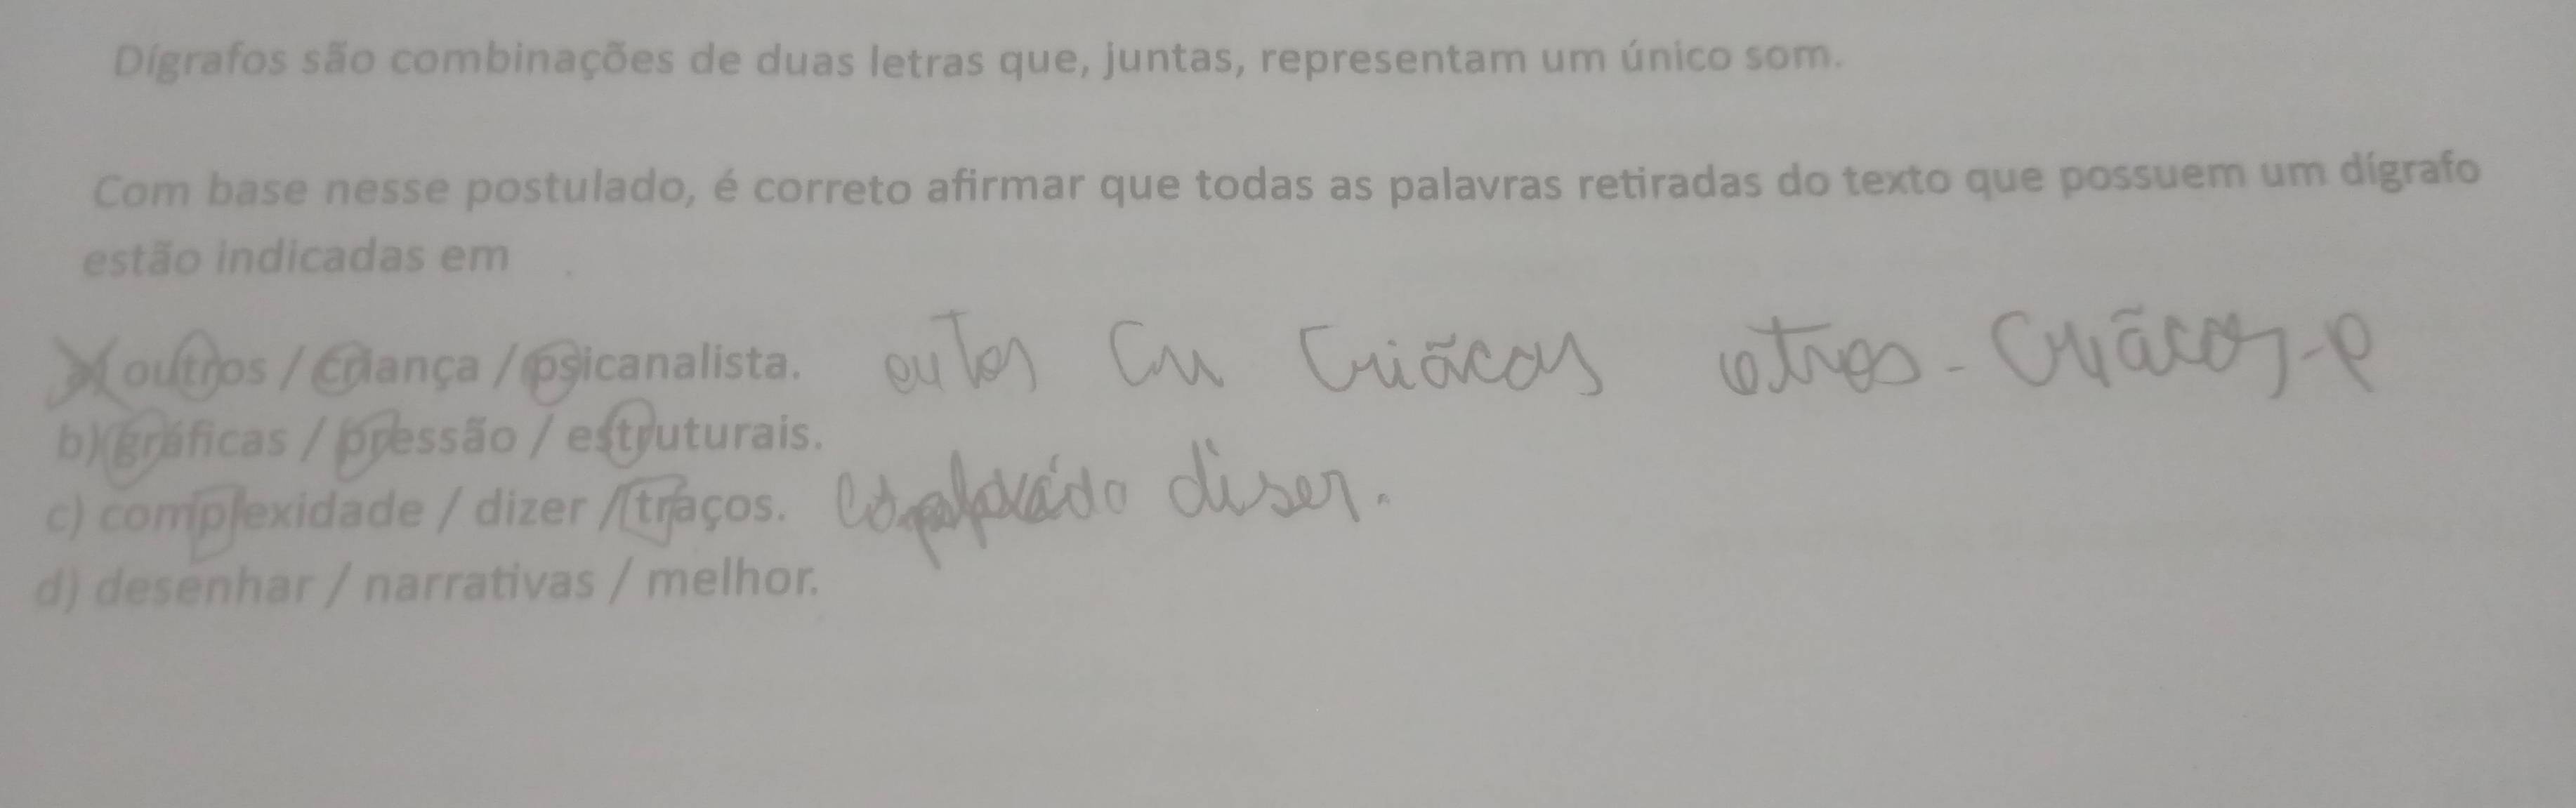 Dígrafos são combinações de duas letras que, juntas, representam um único som.
Com base nesse postulado, é correto afirmar que todas as palavras retiradas do texto que possuem um dígrafo
estão indicadas em
a) outros / criança / psicanalista. outos Cri Criãcas otros - Criãcas - p
b) gráficas / pressão / estruturais.
c) complexidade / dizer / traços. diser.
d) desenhar / narrativas / melhor.